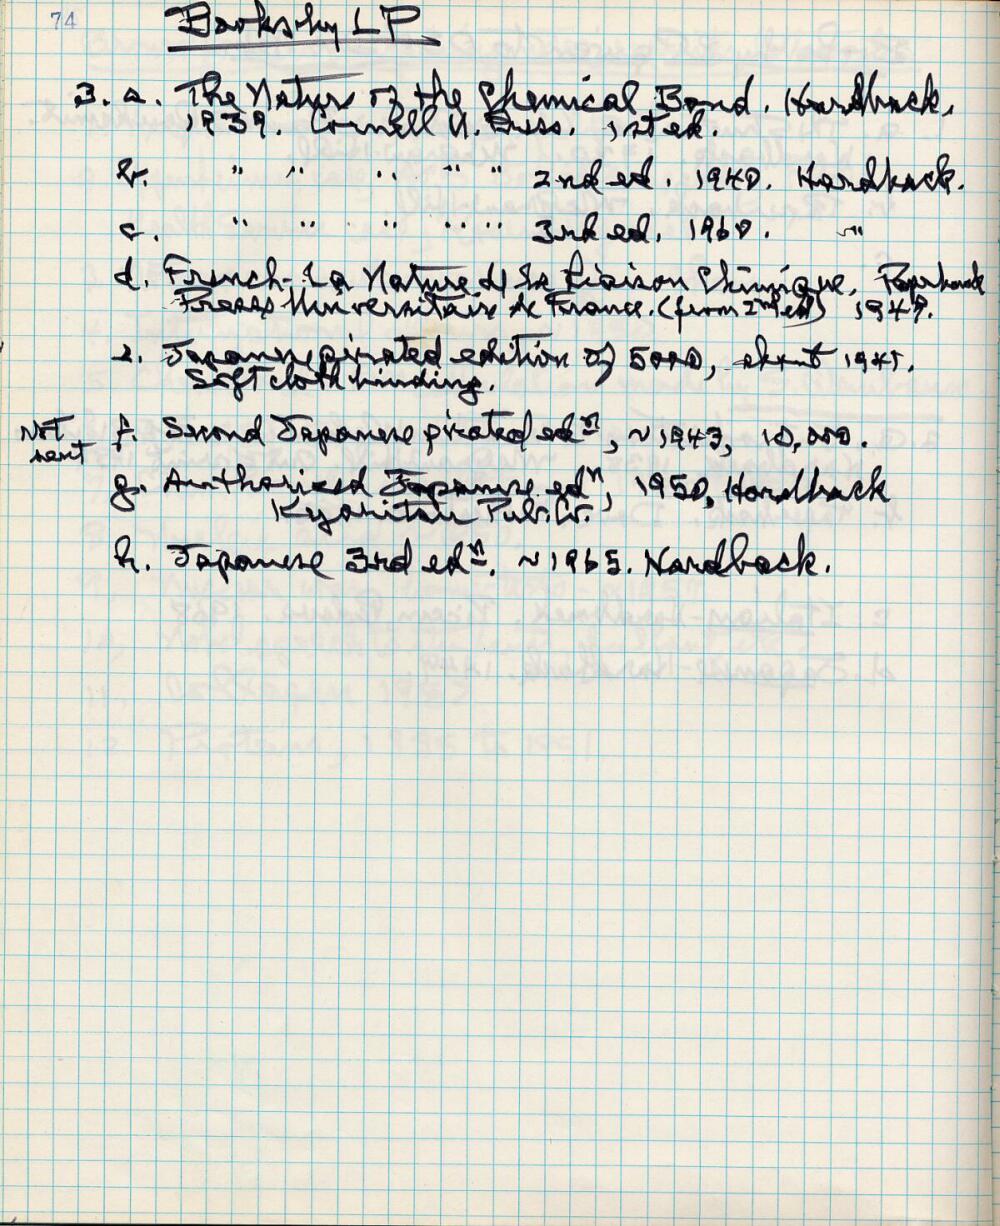 74
Books by LP
3. a. The Nature of the Chemical Bond. Hardback,
1939. Cornell U. Press. 1st ed.
b. " " " " " 2nd ed. 1940. Hardback.
c. " " " " " 3rd ed. 1960. "
d. French - La Nature de la Liaison Chimique, Paperback
Presses Universitaire de France. (from 2nd ed) 1949.
e. Japanese pirated edition of 5000, about 1941.
Soft cloth binding.
Not
sent
f. Second Japanese pirated edn, ~1943, 10,000.
g. Authorized Japanese edn, 1950, Hardback
Kyoritsu Pub. Co.
h. Japanese 3rd edn. ~1965. Hardback.